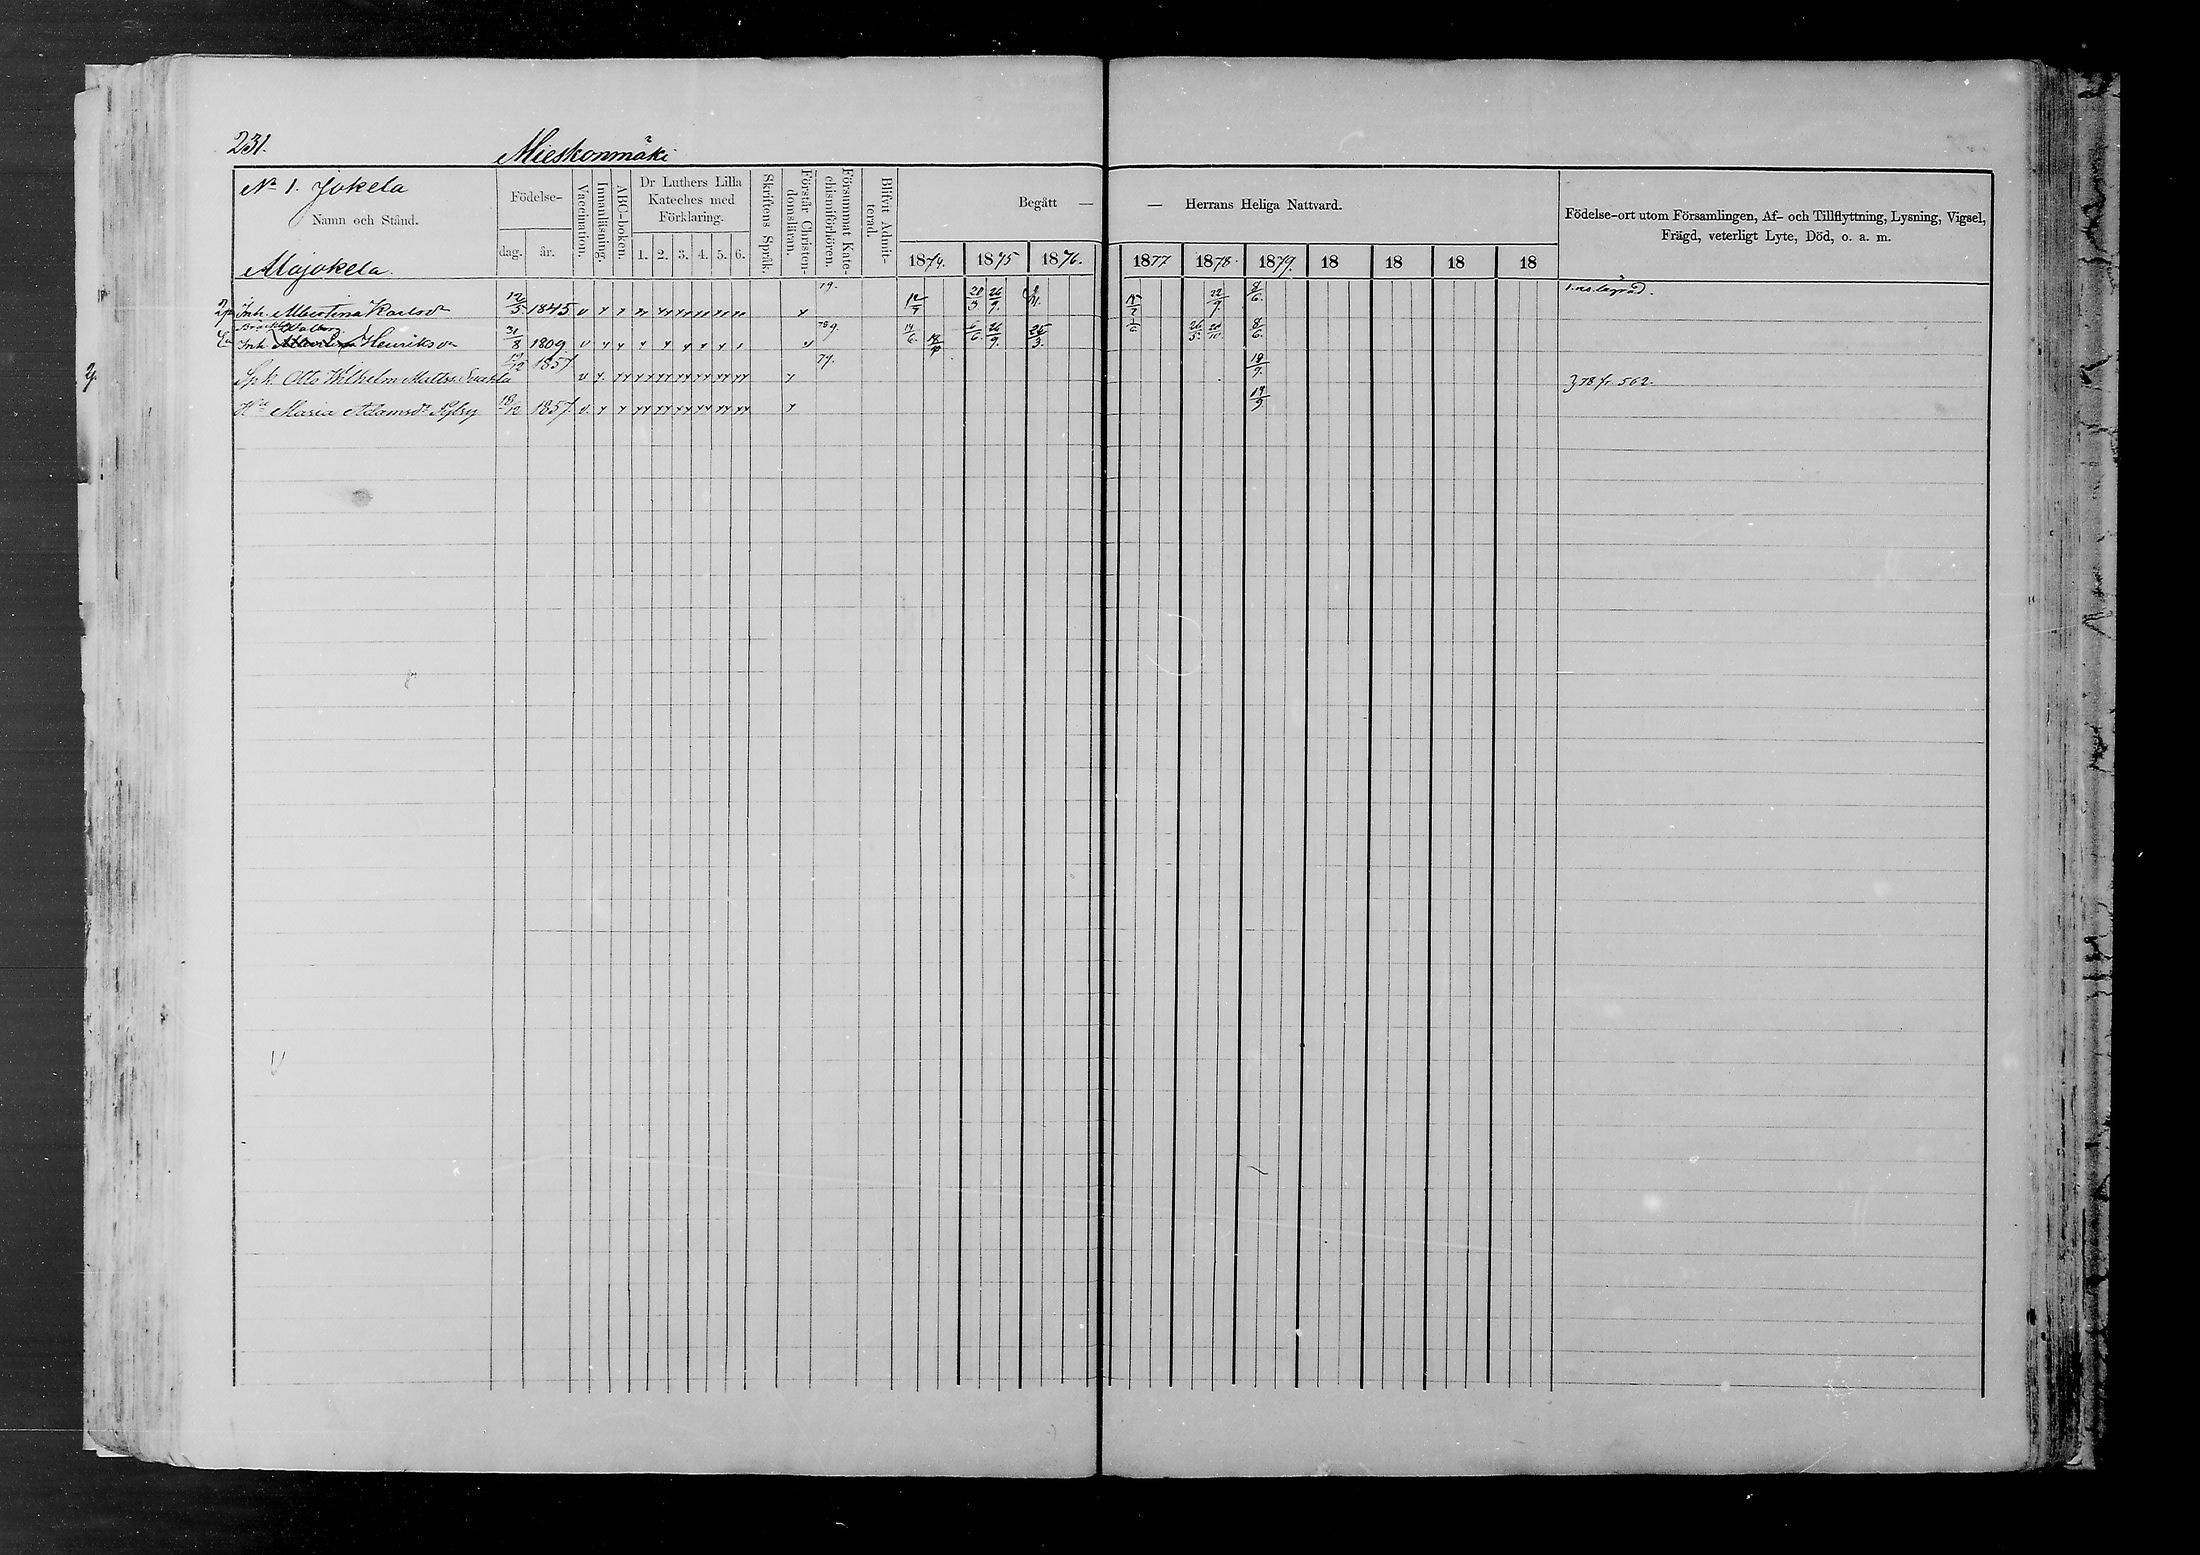 231.
Mieskonmäki
No 1. Jokela
Namn och Stånd.
Alajokela.
Födelse-
dag. år.
Vaccination.
Innanläsning.
ABC-boken.
Dr Luthers Lilla
Kateches med
Förklaring.
1. 2. 3. 4. 5. 6.
Skriftens Språk.
Förstår Christen-
domsläran.
Försummat Kate-
chismiförhören.
Blifvit Admit-
terad.
Begått — — Herrans Heliga Nattvard.
1874. 1875 1876. 1877 1878. 1879. 18 18 18 18
Födelse-ort utom Församlingen, Af- och Tillflyttning, Lysning, Vigsel,
Frägd, veterligt Lyte, Död, o. a. m.
Inh. Albertina Karlsdr 12/5 1845 v 79. 12/7 28/3 26/9. 22/9. 8/6.
Inh. Henriksdr 31/8 1809 v 789. 14/6. 6/6. 26/9. 25/3. 26/5. 20/10. 8/6.
Spk. Otto Wilhelm Mattss. 19/12 1857 v 79. 19/9. 378 fr 562.
Hu Maria Adamsdr 18/12 1857. v. 19/9